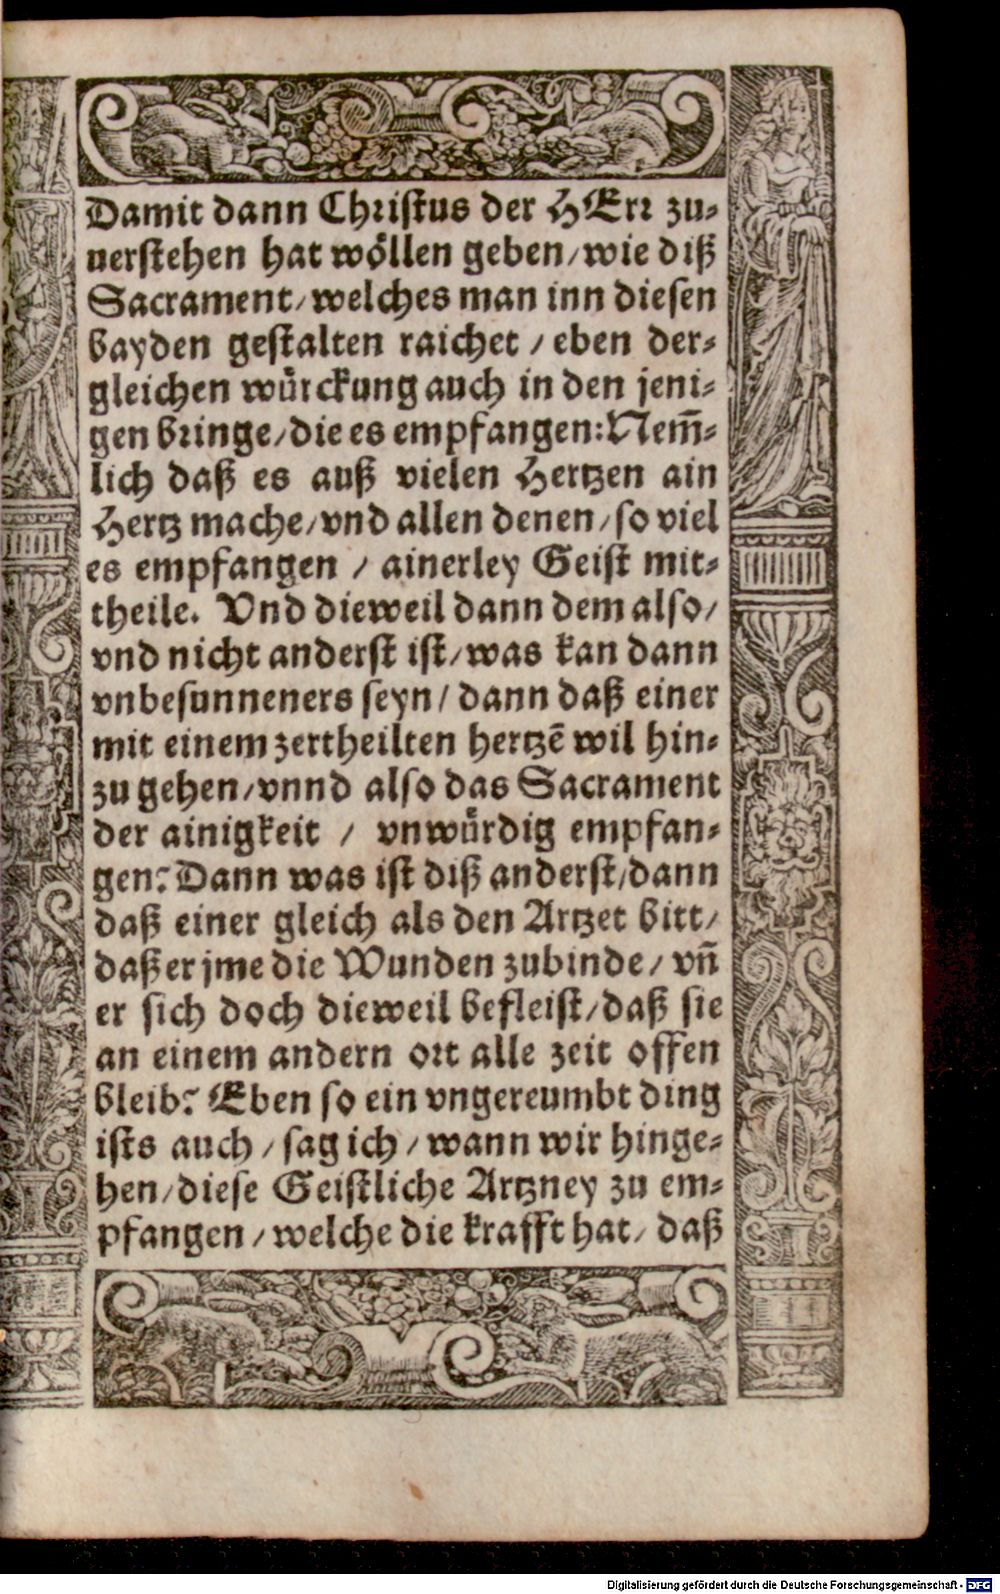 Damit dann Christus der HErr zu⸗
uerstehen hat wöllen geben/wie diß
Sacrament/welches man inn diesen
bayden gestalten raichet/eben der⸗
gleichen würckung auch in den jeni⸗
gen bringe/die es empfangen: Nem̃⸗
lich daß es auß vielen Hertzen ain
Hertz mache/vnd allen denen/so viel
es empfangen/ainerley Geist mit⸗
theile. Vnd dieweil dann dem also/
vnd nicht anderst ist/was kan dann
vnbesunneners seyn/dann daß einer
mit einem zertheilten hertzẽ wil hin⸗
zu gehen/vnnd also das Sacrament
der ainigkeit/vnwürdig empfan⸗
gen? Dann was ist diß anderst/dann
daß einer gleich als den Artzet bitt/
daß er jme die Wunden zubinde/vñ
er sich doch dieweil befleist/daß sie
an einem andern ort alle zeit offen
bleib? Eben so ein vngereumbt ding
ists auch/sag ich/wann wir hinge⸗
hen/diese Geistliche Artzney zu em⸗
pfangen/welche die krafft hat/daß
Digitalisierung gefördert durch die Deutsche Forschungsgemeinschaft - DFG